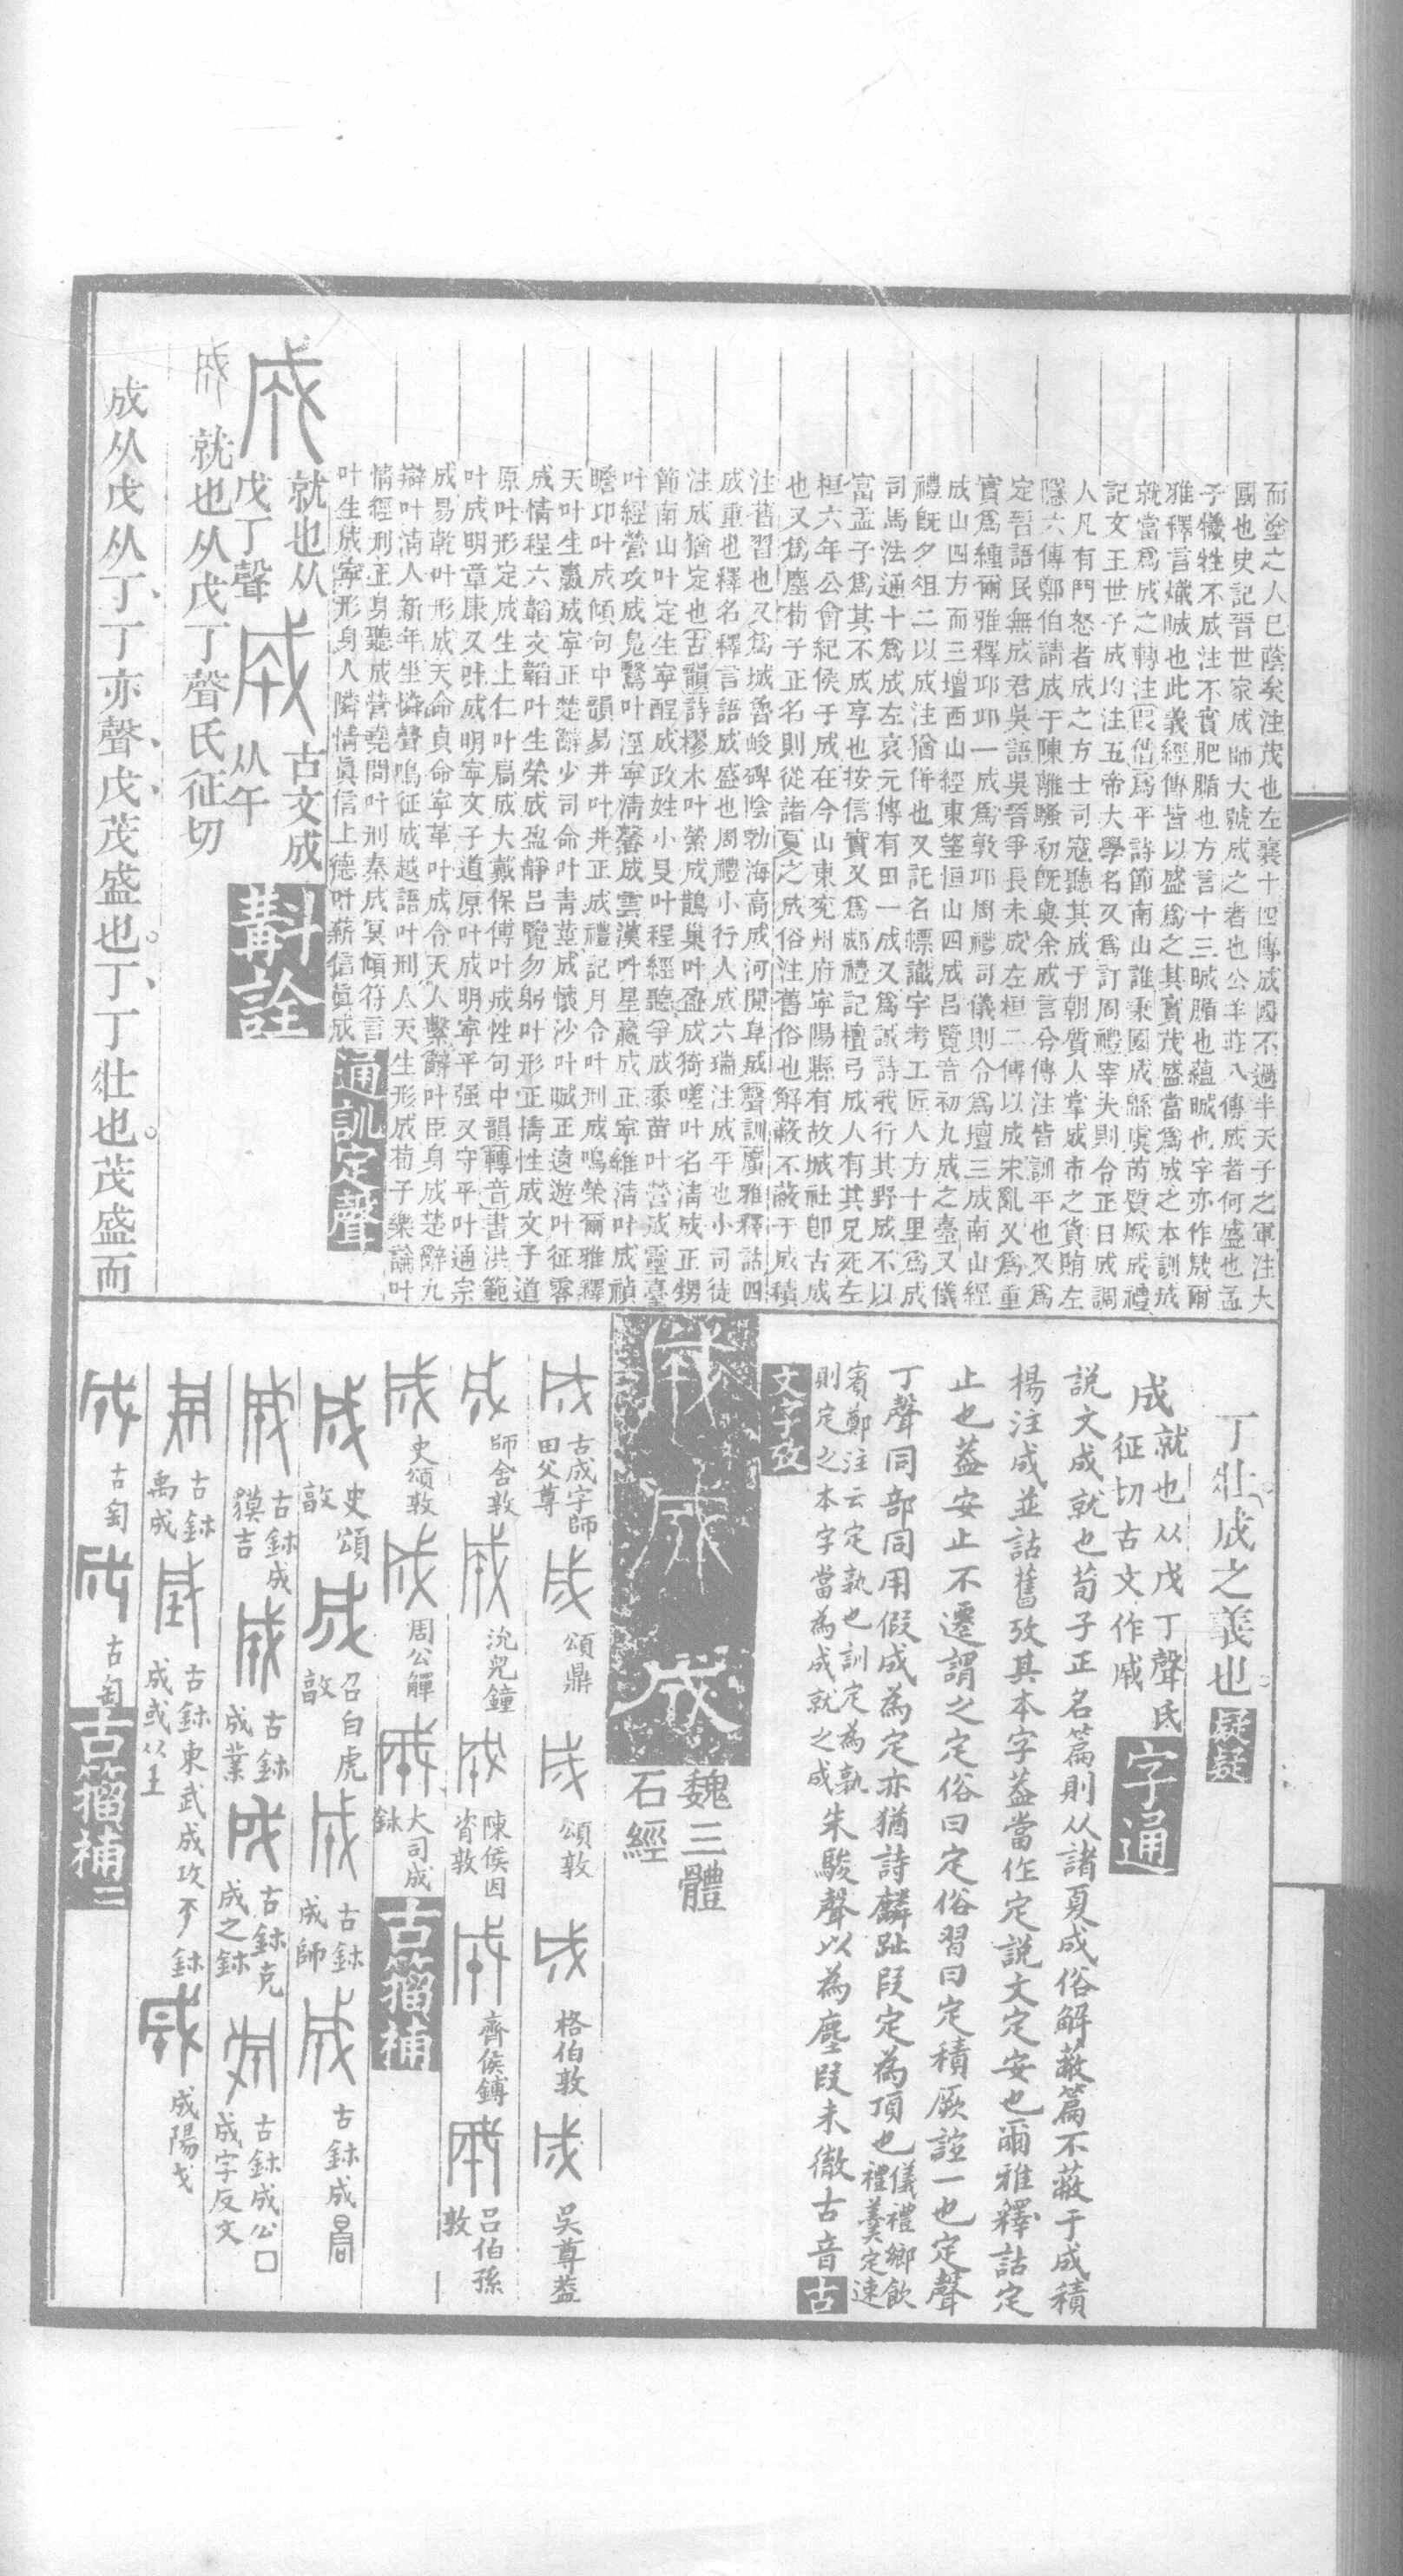 而塗之人已蔭矣注茂也左襄十四傳成國不過半天子之軍注大
國也史記晉世家成師大號成之者也公羊莊八傳成者何盛也孟
子犧牲不成注不實肥腯也方言十三㼩腯也蘊㼩也字亦作晟爾
雅釋言熾㼩也此義經傳皆以盛爲之其實茂盛當爲成之本訓成
就當爲成之轉注叚借爲平詩節南山誰秉國成緜虞芮質厥成禮
記文王世子成均注五帝大學名又爲訂周禮宰夫則令正日成調
人凡有鬥怒者成之方士司寇聽其成于朝質人掌成市之貨賄左
隱六傳鄭伯請成于陳離騷初既與余成言兮傳注皆訓平也又爲
定晉語民無成君吳語吳晉爭長未成左桓二傳以成宋亂又爲重
實爲緟爾雅釋邱邱一成爲敦邱周禮司儀則令爲壇三成南山經
成山四方而三壇西山經東望恒山四成呂覽音初九成之臺又儀
禮既夕俎二以成注猶併也又託名幖識字考工匠人方十里爲成
司馬法通十爲成左哀元傳有田一成又爲誠詩我行其野成不以
富孟子爲其不成享也按信實又爲郕禮記檀弓成人有其兄死左
桓六年公會紀侯于成在今山東兖州府寧陽縣有故城社卽古成
也又爲塵荀子正名則從諸夏之成俗注舊俗也解蔽不蔽于成積
注舊習也又爲城魯峻碑陰勃海高成河閒阜成聲訓廣雅釋詁四
成重也釋名釋言語成盛也周禮小行人成六瑞注成平也小司徒
注成猶定也古韻詩樛木叶縈成鵲巢叶盈成猗嗟叶名清成正甥
節南山叶定生寧酲成政姓小旻叶程經聽爭成黍苗叶營成靈臺
叶經營攻成鳧鷖叶涇寧清馨成雲漢叶星贏成正寧維清叶成禎
瞻卬叶成傾句中韻易井叶井正成禮記月令叶刑成鳴榮爾雅釋
天叶生贏成寧正楚辭少司命叶青莖成懷沙叶晠正遠遊叶征零
成情程六韜文韜叶生榮成盈靜呂覽勿躬叶形正情性成文子道
原叶形定成生上仁叶扃成大戴保傅叶成性句中韻轉音書洪範
叶成明章康又叶成明寧文子道原叶成明寧平强又守平叶通宗
成易乾叶形成天命貞命寧革叶成令天人繫辭叶臣身成楚辭九
辯叶清人新年坐憐聲鳴征成越語叶刑人天生形成荀子樂論叶
情經刑正身聽成營堯問叶刑秦成冥傾符言
叶生成寧形身人隣情眞信上德叶薪信眞成
通訓定聲
就也从
戊丁聲
古文成
从午
斠詮
就也从戊丁聲氏征切
成从戊从丁丁亦聲戊茂盛也丁丁壯也茂盛而
丁壯成之義也
疑疑
成就也从戊丁聲氏
征切古文作戚
字通
說文成就也荀子正名篇則从諸夏成俗解蔽篇不蔽于成積
楊注成並詁舊攷其本字葢當作定說文定安也爾雅釋詁定
止也葢安止不遷謂之定俗曰定俗習曰定積厥誼一也定聲
丁聲同部同用假成為定亦猶詩麟趾叚定為頂也
儀禮鄉飲
禮羹定速
賓鄭注云定孰也訓定為孰
則定之本字當為成就之成
朱駿聲以為塵叚未徹古音
古
文字攷
魏三體
石經
古成字師
田父尊
頌鼎
頌敦
格伯敦
吳尊葢
師舍敦
沇兒鐘
陳侯因
㳄敦
齊侯鎛
呂伯孫
敦
史頌敦
周公觶
大司成
鉥
古籀補
史頌
敦
召伯虎
敦
古鉥
成師
古鉥成
古鉥成
獏吉
古鉥
成業
古鉥克
成之鉥
古鉥成公口
成字反文
古鉥
禹成
古鉥東武成攻𠂤鉥
成或从土
成陽戈
古匋
古匋
古籀補二